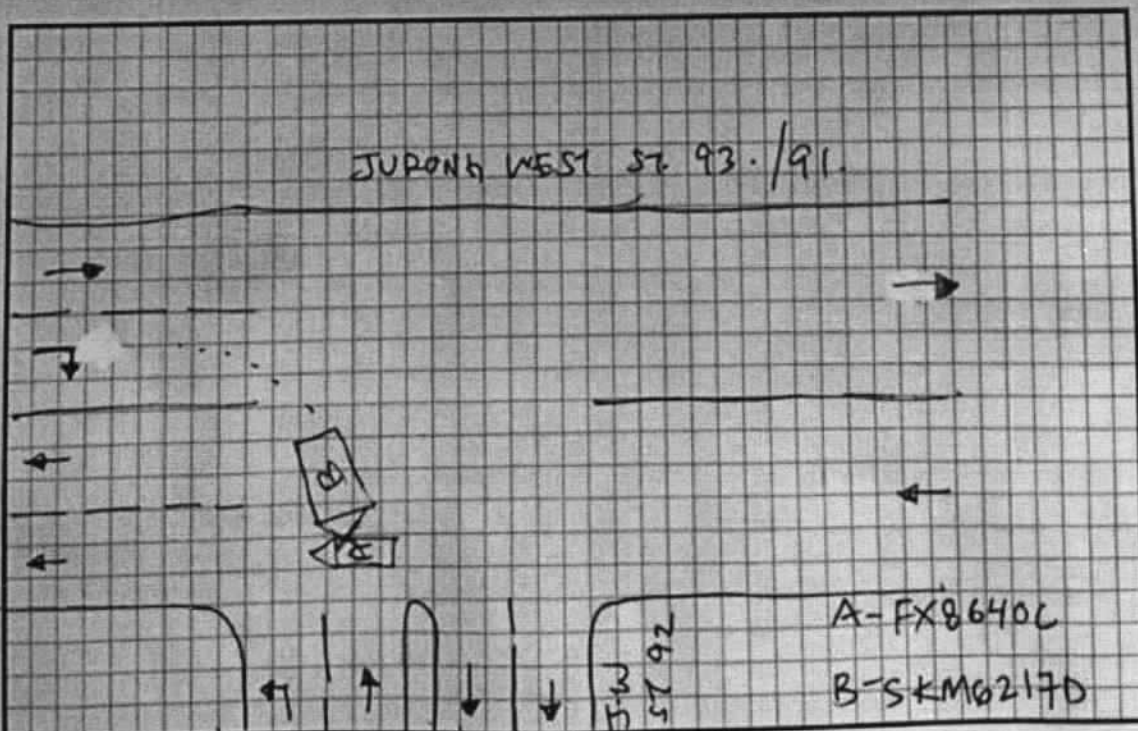 JURONG WEST ST. 93./91.
B
A
JW
ST 92
A-FX8640C
B-SKM6217D